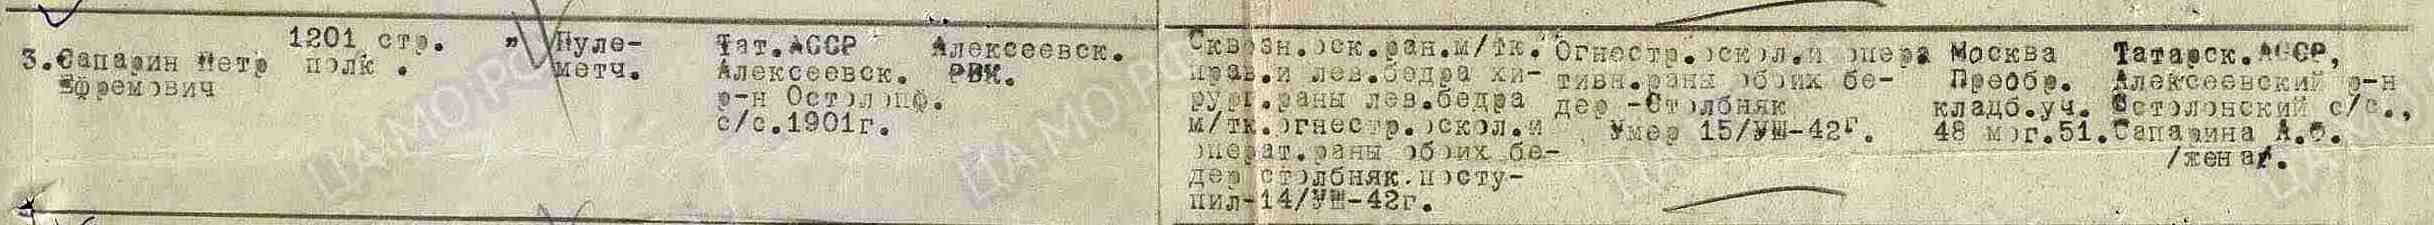 3.Сапарин Петр
Ефремович
1201 стр.
полк .
"
Пуле-
метч.
Тат.АССР
Алексеевск.
р-н Остолопф.
с/с.1901г.
Алексеевск.
РВК.
Сквозн.оск.ран.м/тк.
прав.и лев.бедра хи-
рург.раны лев.бедра
м/тк.огнестр.оскол.и
операт.раны обоих бе-
дер столбняк.посту-
пил-14/УШ-42г.
Огнестр.оскол.и опера
тивн.раны обоих бе-
дер -Столбняк
Умер 15/УШ-42г.
Москва
Преобр.
кладб.уч.
48 мог.51.
Татарск.АССР,
Алексеевский р-н
Остолонский с/с.,
Сапарина А.Ф.
/жена/.
ЦАМО РФ
ЦАМО РФ
ЦАМО РФ